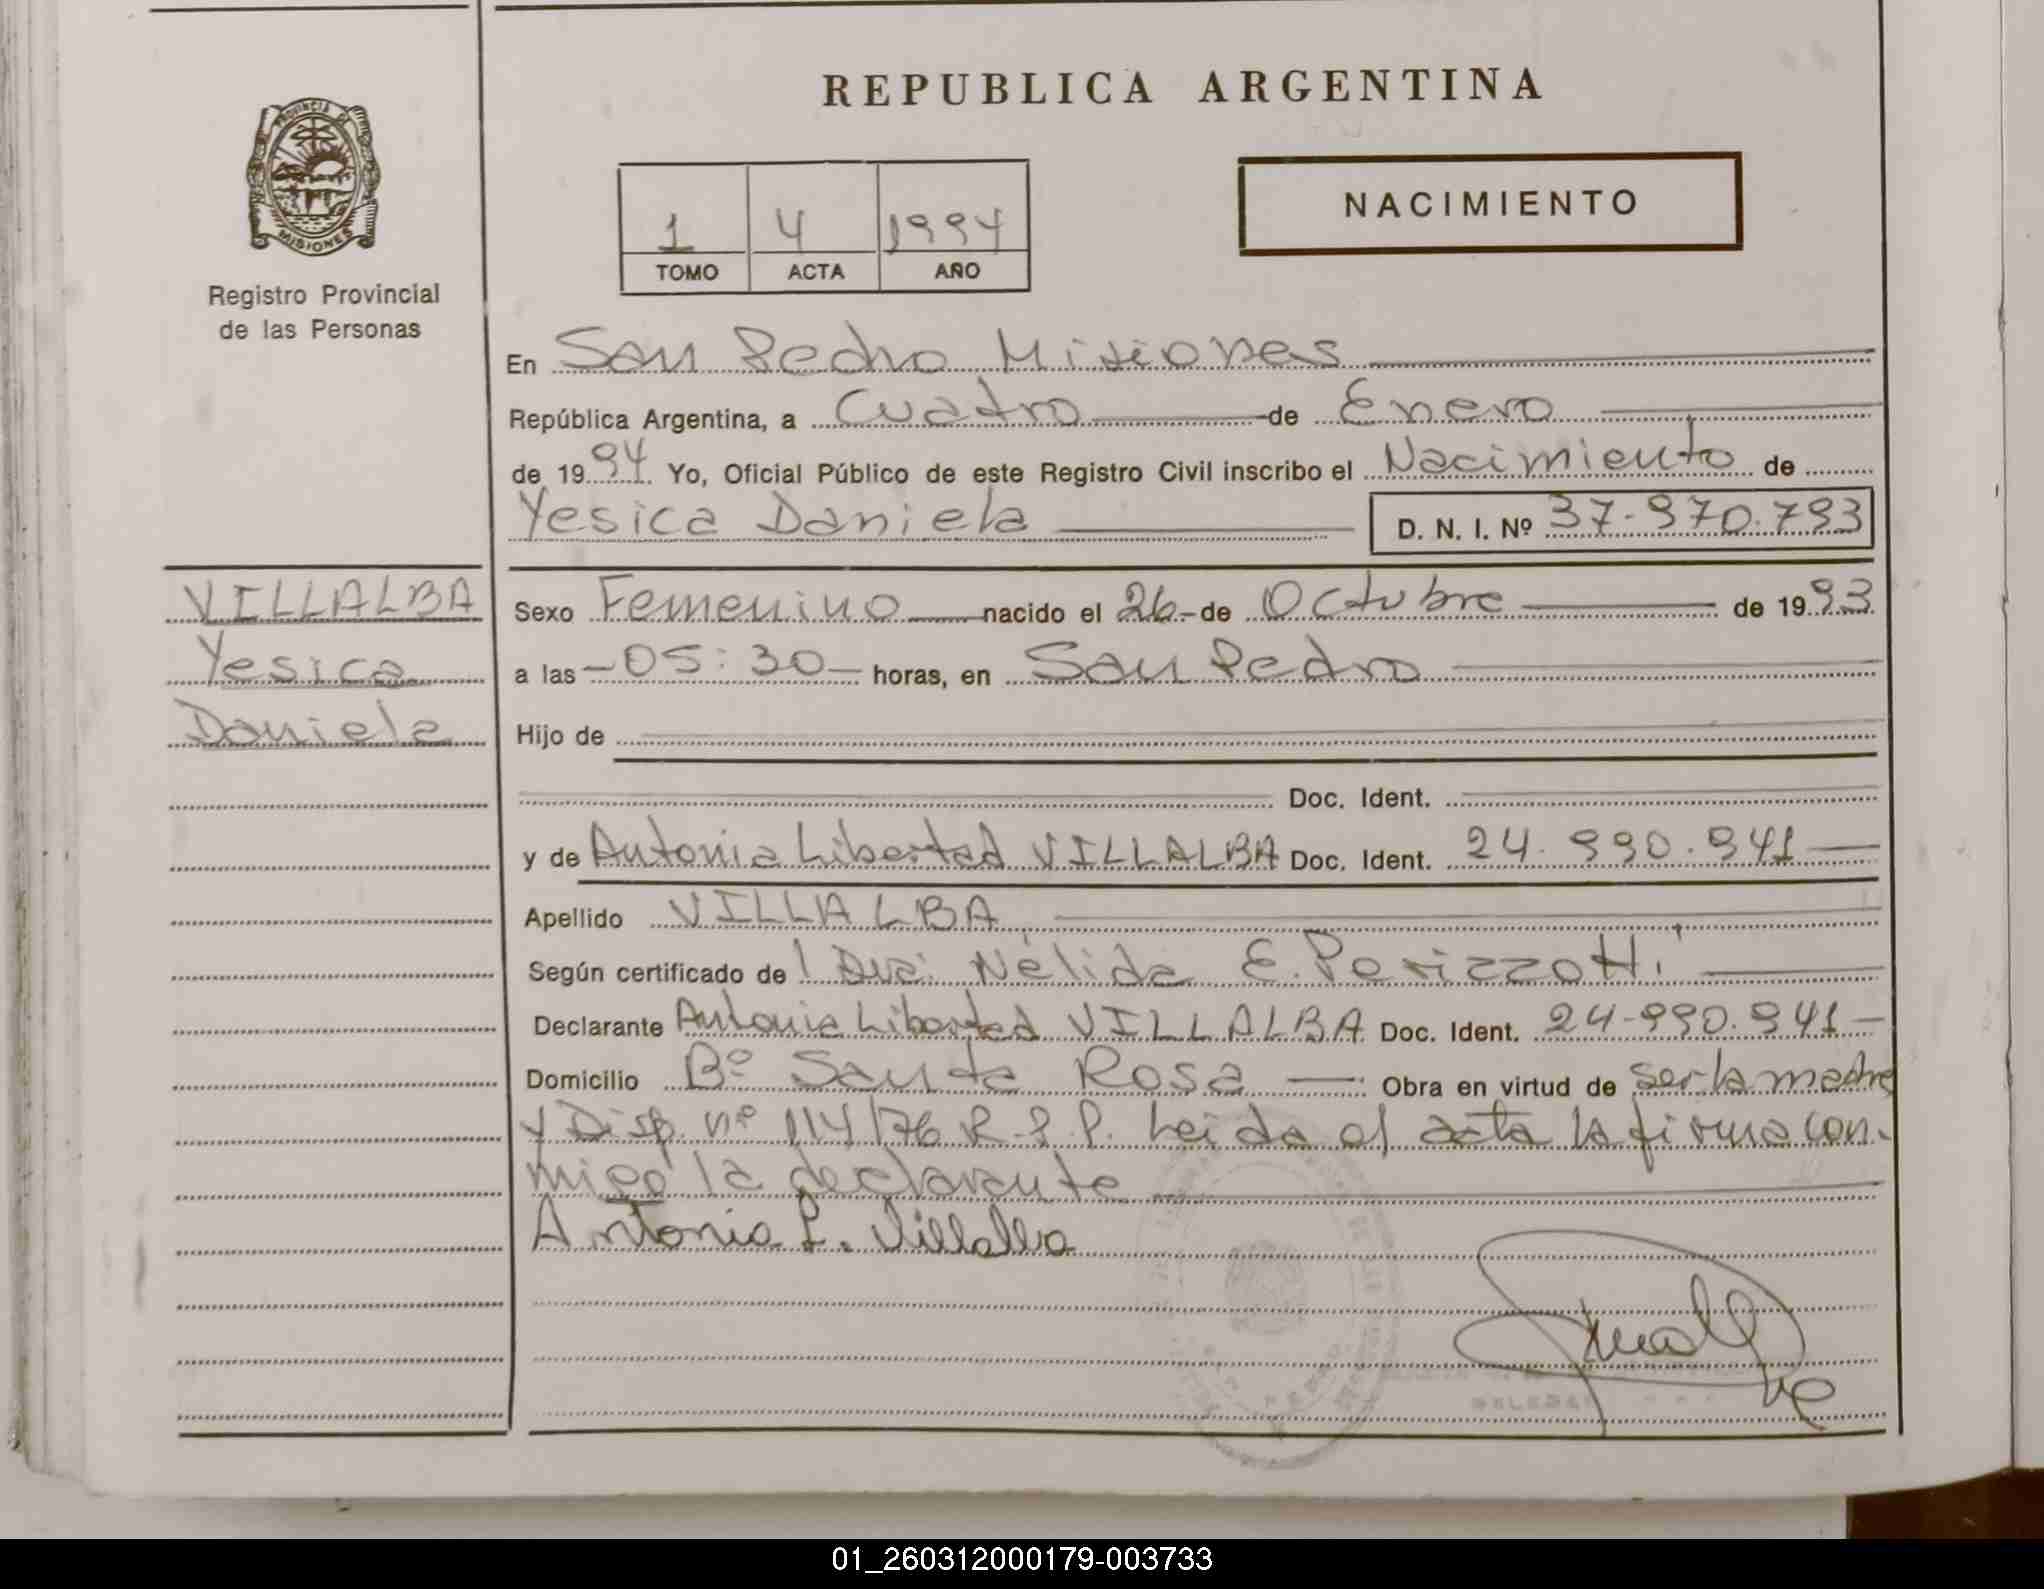 REPUBLICA ARGENTINA
PROVINCIA DE
MISIONES
Registro Provincial
de las Personas
1 4 1994
TOMO ACTA AÑO
NACIMIENTO
En San Pedro Misiones
República Argentina, a Cuatro de Enero
de 1994 Yo, Oficial Público de este Registro Civil inscribo el Nacimiento de
Yesica Daniela D. N. I. Nº 37.970.793
VILLALBA
Yesica
Daniela
Sexo Femenino nacido el 26 de Octubre de 1993
a las 05:30 horas, en San Pedro
Hijo de
Doc. Ident.
y de Antonia Libertad VILLALBA Doc. Ident. 24.990.941
Apellido VILLALBA
Según certificado de Dra: Nélida E. Perizzotti
Declarante Antonia Libertad VILLALBA Doc. Ident. 24.990.941
Domicilio Bº Santa Rosa Obra en virtud de ser la madre
y Disp. nº 114/76 R.P.P. Leida el acta la firma con-
migo la declarante
Antonia L. Villalba
01_260312000179-003733